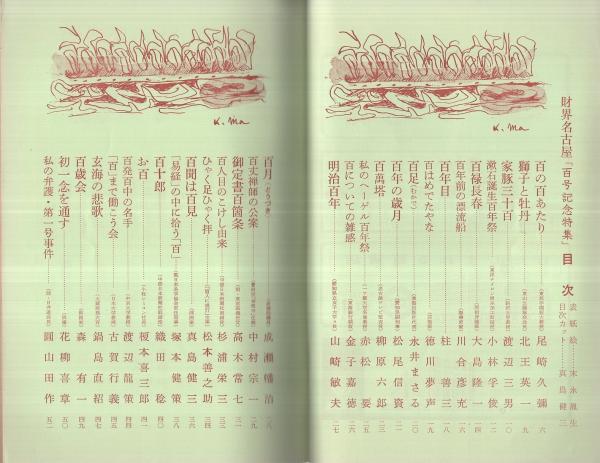 財界名古屋「百号記念特集」目次
表紙絵……末永胤生
目次カット……真島健三
百の百あたり 尾崎久彌 六
獅子と牡丹 北王英一 九
家豚三十百 渡辺三男 一〇
漱石誕生百年祭 小林孚俊 一二
百禄長春 大島隆一 一四
百年前の漂流船 川合彦充 一六
百年目 柱善三 一八
百はめでたやな 徳川夢声 一九
百足(むかで) 永井まさる 二〇
百年の歳月 松尾信資 二一
百萬塔 柳原六郎
私のヘーゲル百年祭 赤松要 二五
百についての雑感 金子嘉徳 二六
明治百年 山崎敏夫 二七
K. Ma
百月 成瀬幡治 二八
百丈禅師の公案 中村宗一 二九
御定書百箇条 高木常七 三一
百人目のこけし由来 杉浦栄三 三二
ひゃく足ひゃく拝 松本善之助
百聞は百見 真島健三 三六
「易経」の中に拾う「百」 塚本健策 三八
百十郎 織田稔 四〇
お百 榎本喜三郎 四一
百発百中の名手 渡辺龍策 四四
「百」まで働こう会 古賀行義 四五
玄海の悲歌 鍋島直紹 四七
百歳会 森有一 四九
初一念を通す 花柳喜章 五〇
私の弁護・第一号事件 圓山田作 五二
K. Ma